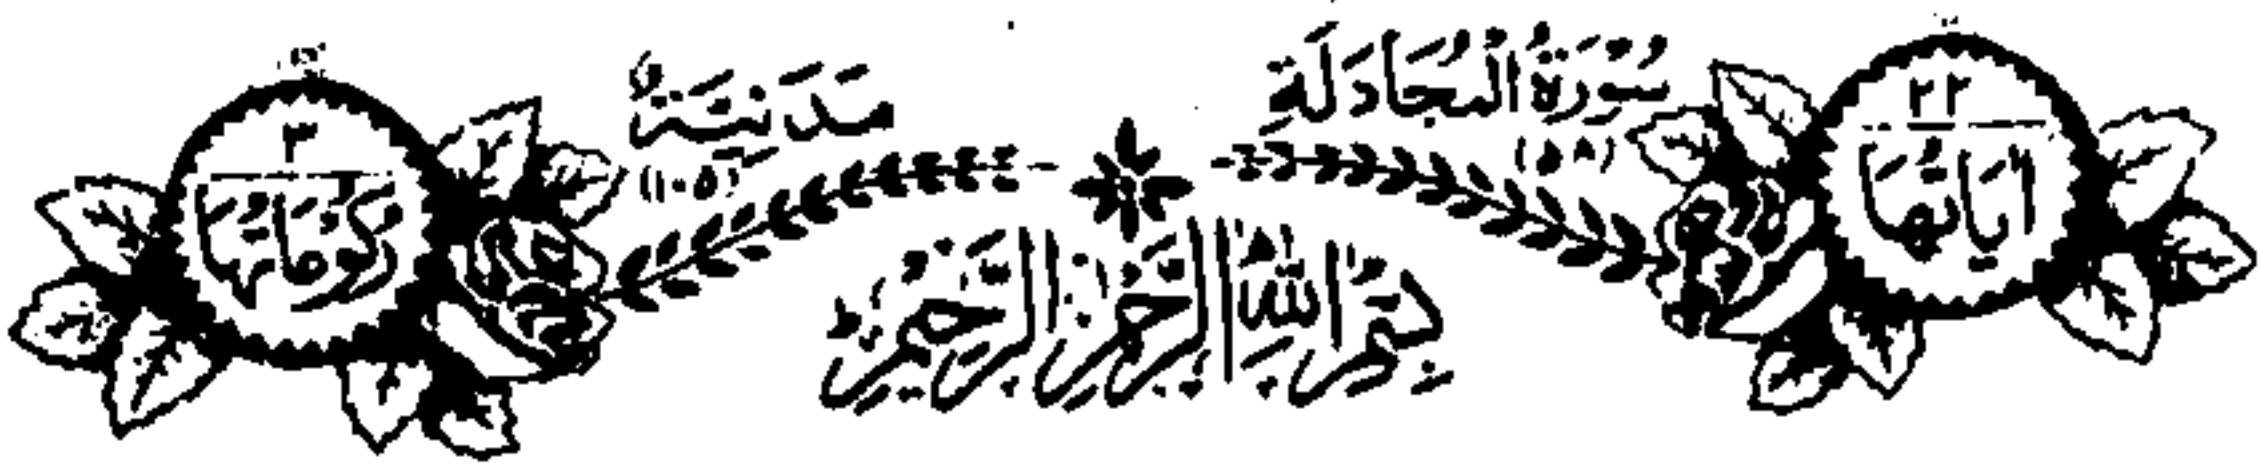 ٢٢
اٰيَاتُهَا
سُوْرَةُ الْمُجَادَلَةِ
(٥٨)
مَدَنِيَّةٌ
(١٠٥)
٣
رُكُوْعَاتُهَا
بِسْمِ اللّٰهِ الرَّحْمٰنِ الرَّحِيْمِ